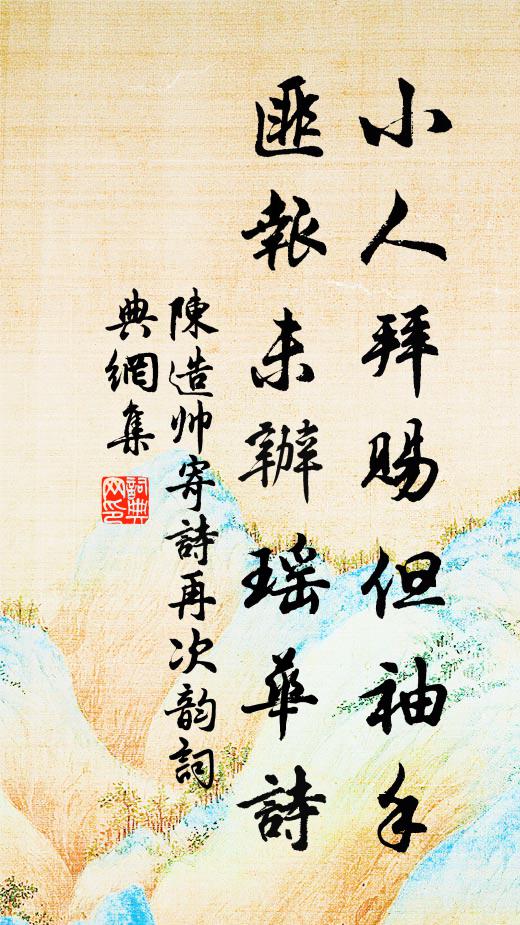 小人拜賜但袖手
匪報未辦瑶華詩
陳造帅寄詩再次韵詞
典網集
詞典
网印